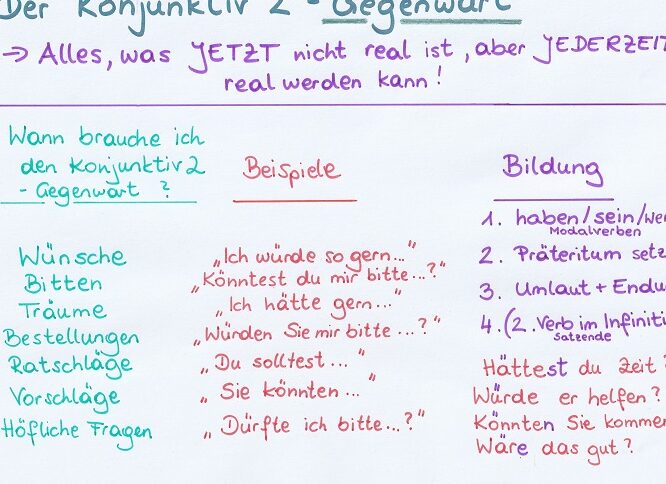 Der Konjunktiv 2 - Gegenwart
→ Alles, was JETZT nicht real ist, aber JEDERZEIT
real werden kann!
Wann brauche ich
den Konjunktiv 2
- Gegenwart ?
Beispiele
Bildung
Wünsche
Bitten
Träume
Bestellungen
Ratschläge
Vorschläge
Höfliche Fragen
„Ich würde so gern..."
„Könntest du mir bitte...?"
„Ich hätte gern..."
„Würden Sie mir bitte...?"
„Du solltest..."
„Sie könnten..."
„Dürfte ich bitte...?"
1. haben/sein/wer
Modalverben
2. Präteritum setz
3. Umlaut + Endu
4. (2. Verb im Infiniti
Satzende
Hättest du Zeit?
Würde er helfen?
Könnten Sie komme
Wäre das gut?